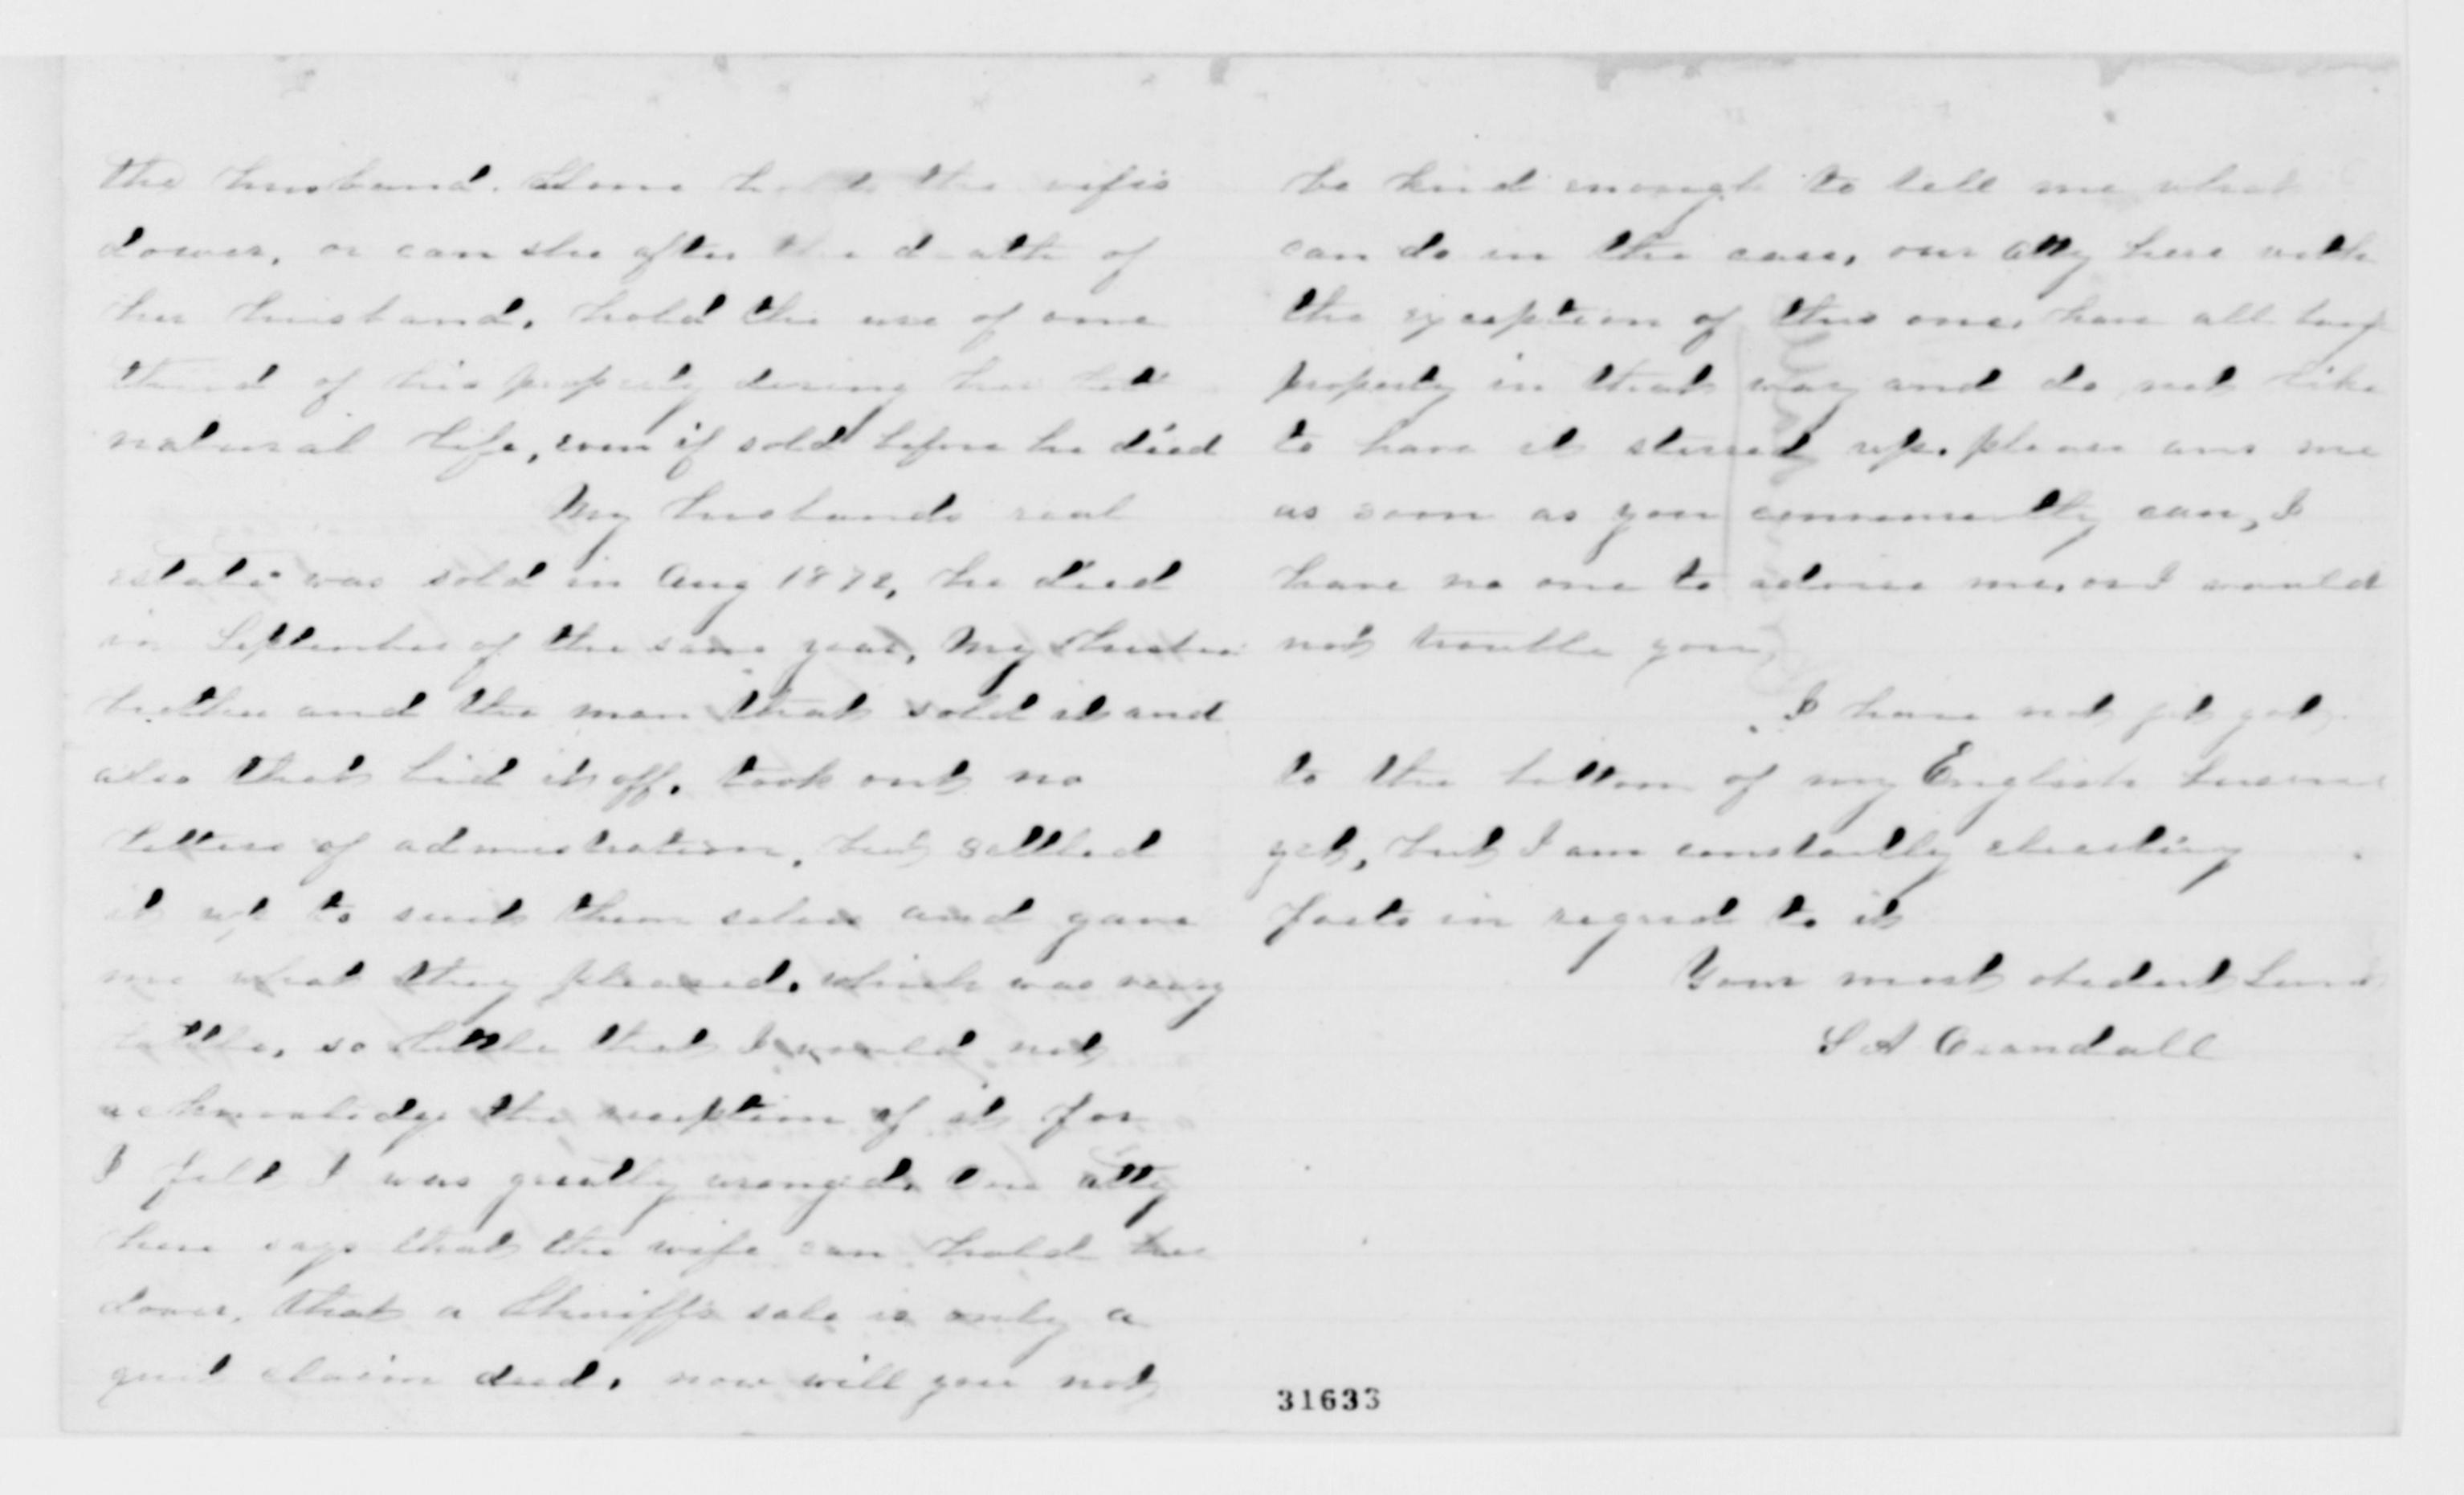 the husband. Does he the wife's
dower, or can she after the death of
her husband, hold the use of one
third of his property during her
natural life, even if sold before he died
My husbands real
estate was sold in Aug 1872, he died
in September of the same year, My
brother and the man that sold it and
also that bid it off, took out no
letters of admnistration, but settled
it up to suit them selves and gave
me what they pleased, which was very
little, so little that I would not
acknowledge the reception of it for
I felt I was greatly wronged. One atty
here says that the wife can hold her
dower, that a Sheriffs sale is only a
quit claim deed, now will you not
be kind enough to tell me what
can do in the case, our atty here with
the exception of this one, have all
property in that way and do not like
to have it stirred up. please ans me
as soon as you conveniently can, I
have no one to advise me, or I would
not trouble you,
I have not yet got
to the bottom of my English
yet, but I am constantly
facts in regard to it
Your most obedient
S A Crandall
31633